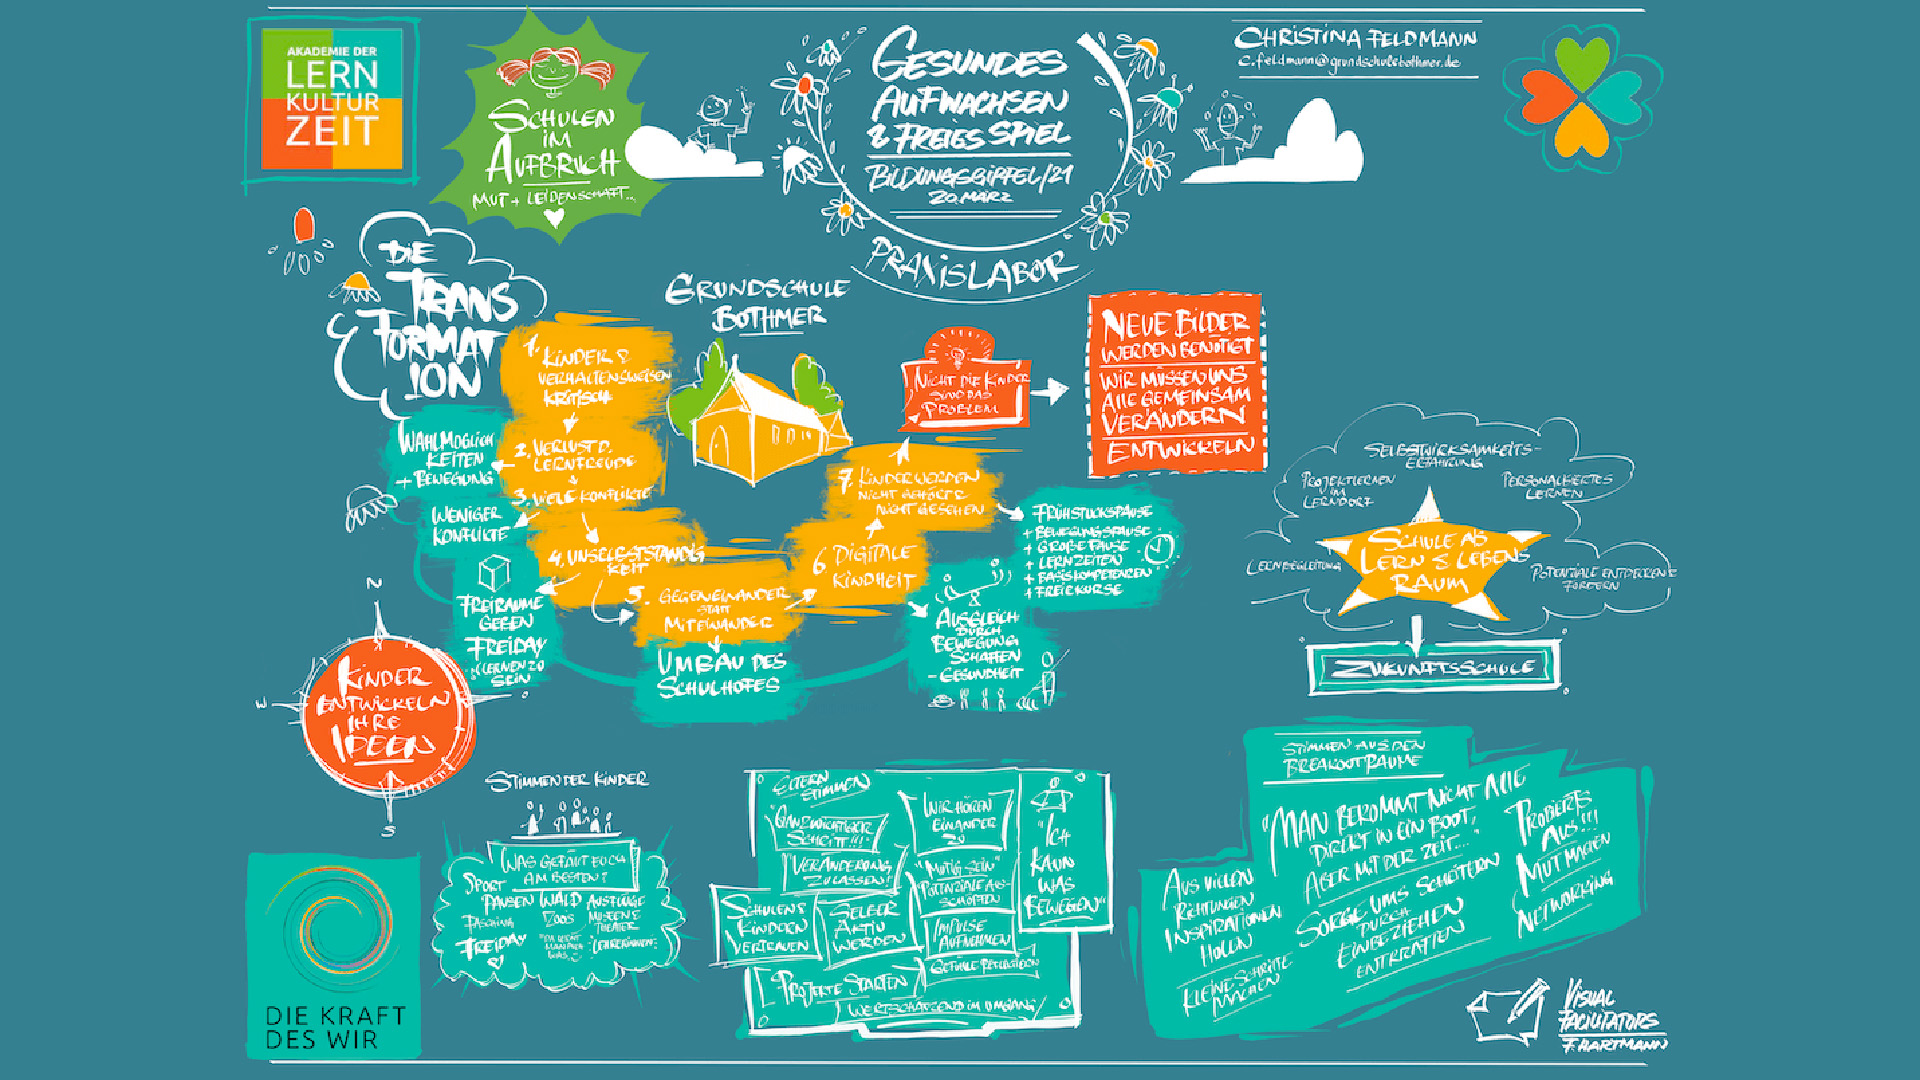 AKADEMIE DER
LERN
KULTUR
ZEIT
SCHULEN
IM
AUFBRUCH
MUT + LEIDENSCHAFT...
GESUNDES
AUFWACHSEN
& FREIES SPIEL
BILDUNGSGIPFEL/21
20. MÄRZ
PRAXISLABOR
CHRISTINA FELDMANN
c.feldmann@grundschulebothmer.de
DIE
TRANS
FORMAT
ION
GRUNDSCHULE
BOTHMER
1. KINDER &
VERHALTENSWEISEN
KRITISCH
2. VERLUST D.
LERNFREUDE
&
3. VIELE KONFLIKTE
4. UNSELBSTSTÄNDIG
KEIT
5. GEGENEINANDER
STATT
MITEINANDER
6 DIGITALE
KINDHEIT
7. KINDER WERDEN
NICHT GEHÖRT &
NICHT GESEHEN
NICHT DIE KINDER
SIND DAS
PROBLEM
NEUE BILDER
WERDEN BENÖTIGT
WIR MÜSSEN UNS
ALLE GEMEINSAM
VERÄNDERN
ENTWICKELN
WAHLMÖGLICH
KEITEN
+ BEWEGUNG
WENIGER
KONFLIKTE
FREIRÄUME
GEBEN
FREIDAY
LERNEN 20
SEIN
UMBAU DES
SCHULHOFES
AUSGLEICH
DURCH
BEWEGUNG
SCHAFFEN
- GESUNDHEIT
FRÜHSTÜCKSPAUSE
+ BEWEGUNGSPAUSE
+ GROßE PAUSE
+ LERNZEITEN
+ BASISKOMPETENZEN
+ FREIE KURSE
SELBSTWIRKSAMKEITS-
ERFAHRUNG
PROJEKTLERNEN
IM
LERNDORF
PERSONALISIERTES
LERNEN
LERNBEGLEITUNG
SCHULE ALS
LERN & LEBENS
RAUM
POTENZIALE ENTDECKEN &
FÖRDERN
ZUKUNFTSSCHULE
N
W
O
S
KINDER
ENTWICKELN
IHRE
IDEEN
STIMMEN DER KINDER
WAS GEFÄLLT EUCH
AM BESTEN?
SPORT
PAUSEN WALD AUSFLÜGE
FASCHING
ZOOS
MUSEEN &
THEATER
FREIDAY
LEHRERINNEN
ELTERN
STIMMEN
"GANZ WICHTIGER
SCHRITT!!!"
WIR HÖREN
EINANDER
ZU
"VERÄNDERUNG
ZULASSEN!
"MUTIG SEIN"
POTENZIALE AUS-
SCHÖPFEN
SCHULEN &
KINDERN
VERTRAUEN
SELBER
AKTIV
WERDEN
IMPULSE
AUFNEHMEN
PROJEKTE STARTEN
WERTSCHÄTZEND IM UMGANG
"ICH
KANN
WAS
BEWEGEN"
STIMMEN AUS DEN
BREAKOUT RÄUME
"MAN BEKOMMT NICHT ALLE
DIREKT IN EIN BOOT,
ABER MIT DER ZEIT..."
AUS VIELEN
RICHTUNGEN
INSPIRATIONEN
HOLEN
KLEINE SCHRITTE
MACHEN
SORGE UMS SCHEITERN
DURCH
EINBEZIEHEN
ENTKRÄFTEN
PROBIERTS
AUS!!!
MUT MACHEN
NETWORKING
DIE KRAFT
DES WIR
VISUAL
FACILITATORS
F. HARTMANN